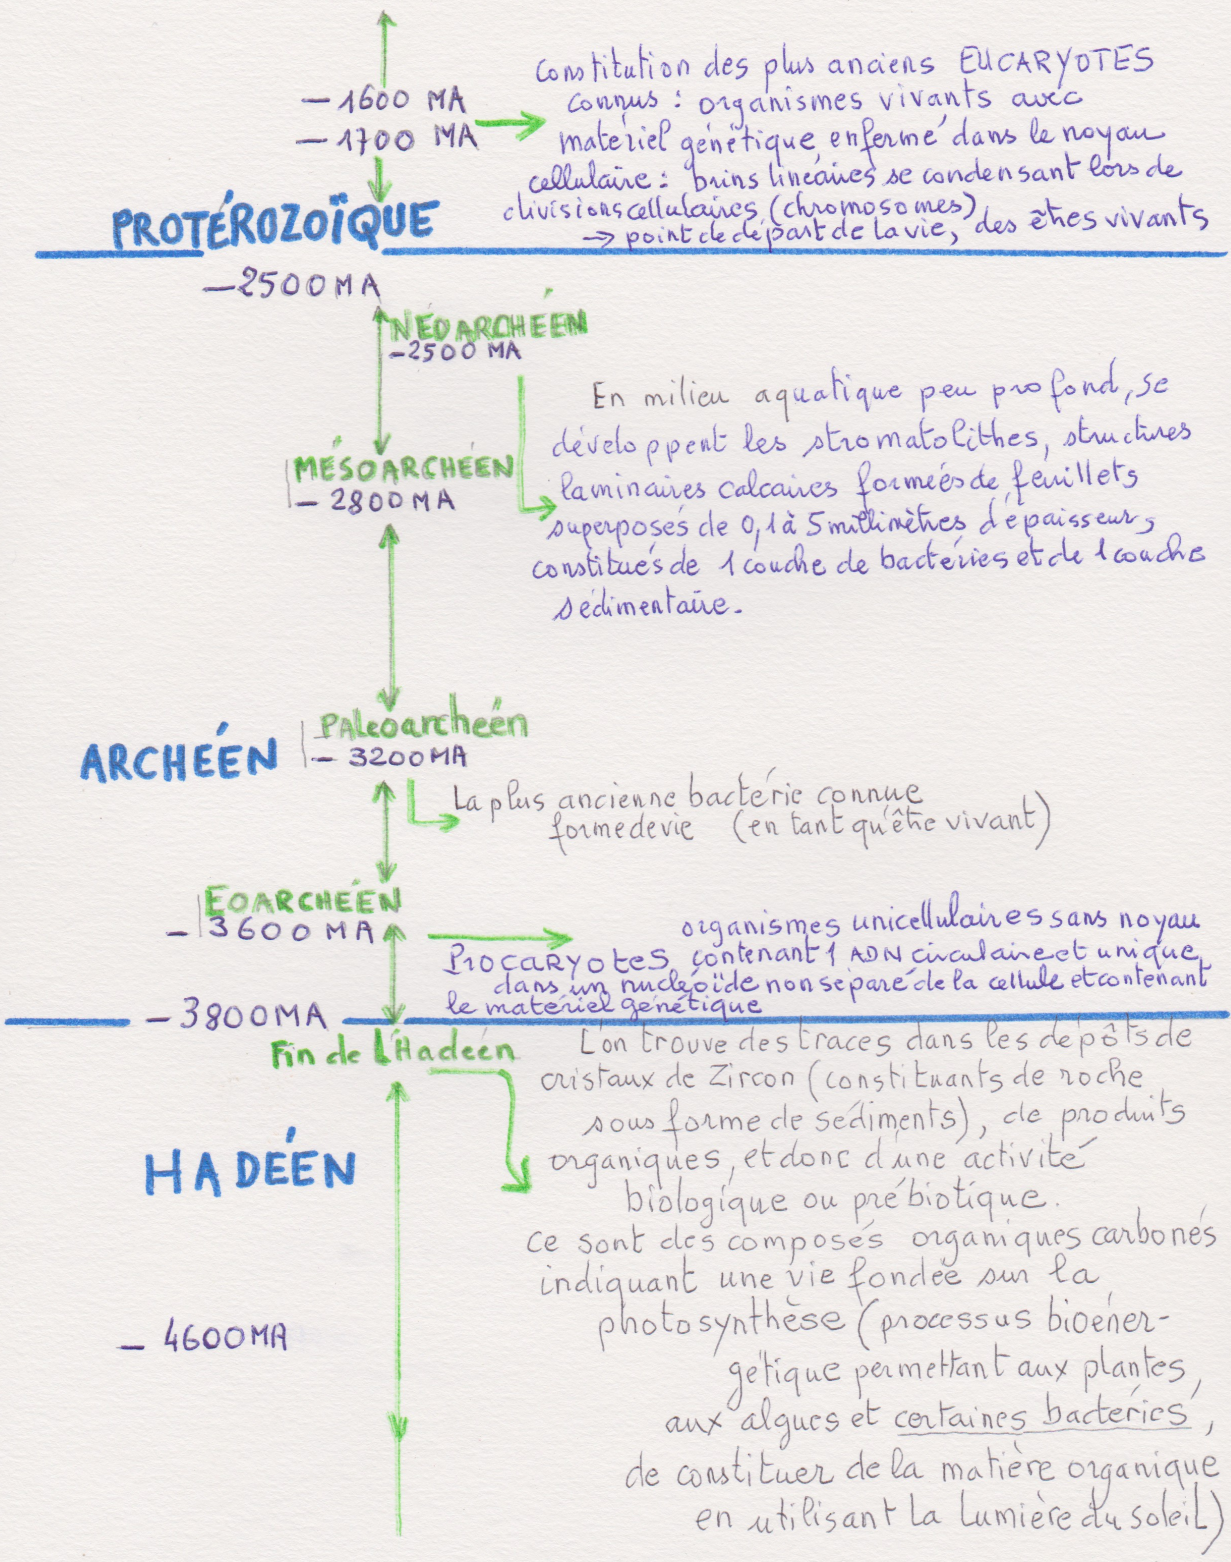 – 1600 MA
– 1700 MA
Constitution des plus anciens EUCARYOTES
connus : organismes vivants avec
matériel génétique enfermé dans le noyau
cellulaire : brins linéaires se condensant lors de
divisions cellulaires (chromosomes)
→ point de départ de la vie, des êtres vivants
PROTÉROZOÏQUE
– 2500 MA
NÉOARCHÉEN
– 2500 MA
En milieu aquatique peu profond, se
développent les stromatolithes, structures
laminaires calcaires formées de feuillets
superposés de 0,1 à 5 millimètres d'épaisseur,
constitués de 1 couche de bactéries et de 1 couche
sédimentaire.
MÉSOARCHÉEN
– 2800 MA
PALéoarchéen
– 3200 MA
ARCHÉEN
La plus ancienne bactérie connue
forme de vie (en tant qu'être vivant)
EOARCHÉEN
– 3600 MA
organismes unicellulaires sans noyau
PROCARYOTES contenant 1 ADN circulaire et unique
dans un nucléoïde non séparé de la cellule et contenant
le matériel génétique
– 3800 MA
Fin de L'Hadéen
L'on trouve des traces dans les dépôts de
cristaux de Zircon (constituants de roche
sous forme de sédiments), de produits
organiques, et donc d'une activité
biologique ou prébiotique.
HADÉEN
Ce sont des composés organiques carbonés
indiquant une vie fondée sur la
photosynthèse (processus bioéner-
gétique permettant aux plantes,
aux algues et certaines bactéries,
de constituer de la matière organique
en utilisant la Lumière du soleil)
– 4600 MA